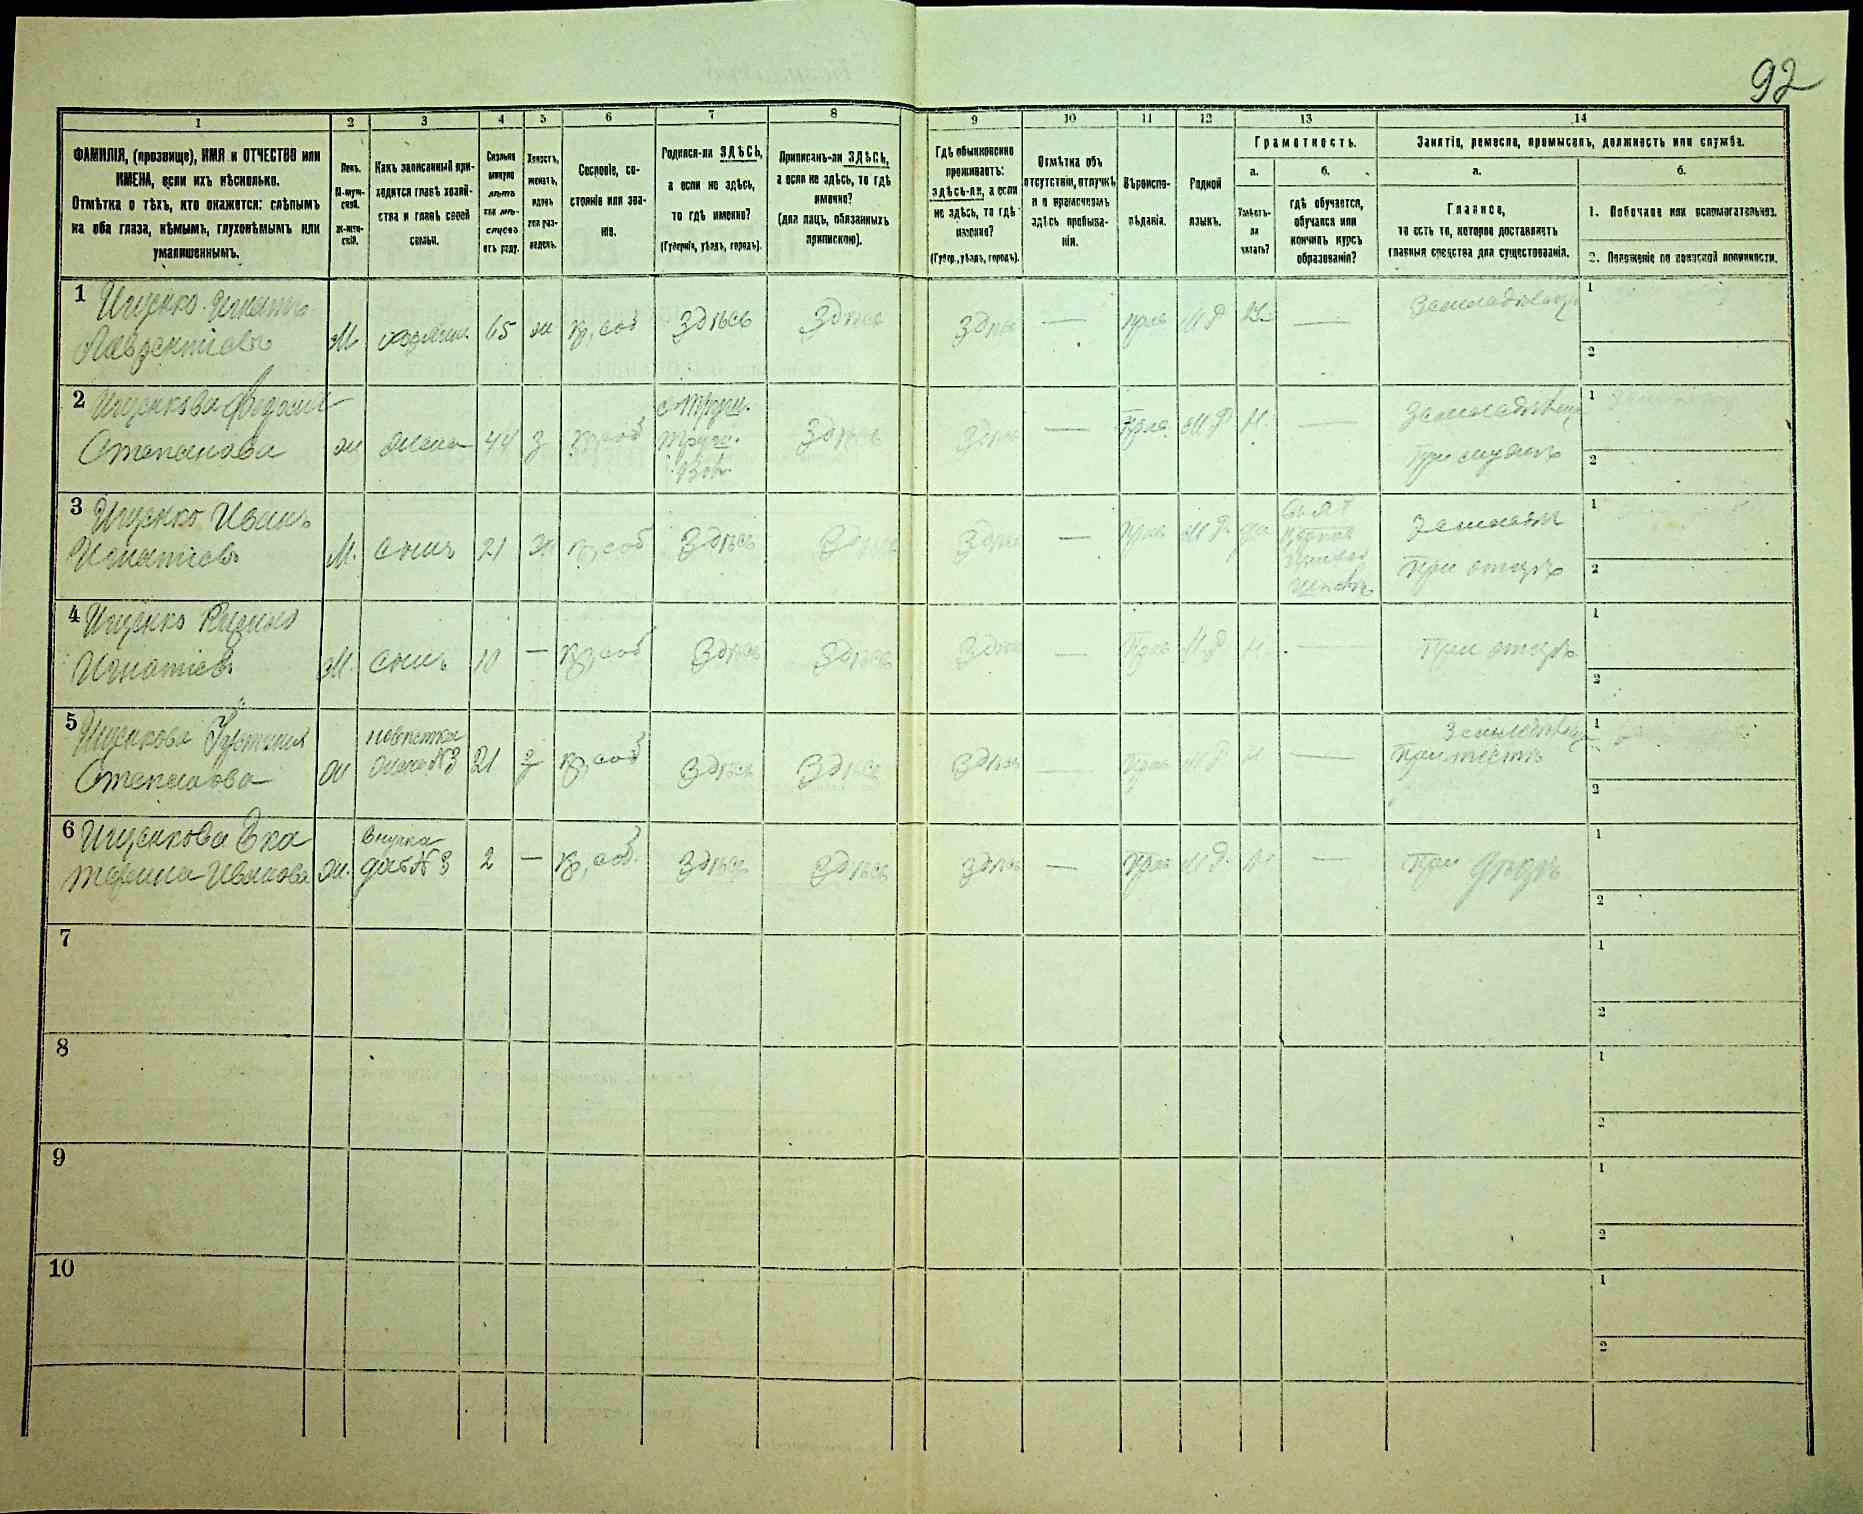 92
1 2 3 4 5 6 7 8 9 10 11 12 13 14
ФАМИЛІЯ, (прозвище), ИМЯ и ОТЧЕСТВО или
ИМЕНА, если ихъ нѣсколько.
Отмѣтка о тѣхъ, кто окажется: слѣпымъ
на оба глаза, нѣмымъ, глухонѣмымъ или
умалишеннымъ.
Полъ.
М-муж-
ской.
Ж-жен-
скій.
Какъ записанный при-
ходится главѣ хозяй-
ства и главѣ своей
семьи.
Сколько
минуло
лѣтъ
или мѣ-
сяцевъ
отъ роду.
Холостъ,
женатъ,
вдовъ
или раз-
веденъ.
Сословіе, со-
стояніе или зва-
ніе.
Родился-ли ЗДѢСЬ,
а если не здѣсь,
то гдѣ именно?
(Губернія, уѣздъ, городъ).
Приписанъ-ли ЗДѢСЬ,
а если не здѣсь, то гдѣ
именно?
(для лицъ, обязанныхъ
припискою).
Гдѣ обыкновенно
проживаетъ:
здѣсь-ли, а если
не здѣсь, то гдѣ
именно?
(Губер., уѣздъ, городъ).
Отмѣтка объ
отсутствіи, отлучкѣ
и о временномъ
здѣсь пребыва-
ніи.
Вѣроиспо-
вѣданіе.
Родной
языкъ.
Грамотность.
а.
Умѣетъ-
ли
читать?
б.
гдѣ обучается,
обучался или
кончилъ курсъ
образованія?
Занятіе, ремесло, промыселъ, должность или служба.
а.
Главное,
то есть то, которое доставляетъ
главныя средства для существованія.
б.
1. Побочное или вспомогательное.
2. Положеніе по воинской повинности.
1 Ищенко Игнатъ
Лаврентіевъ М. хозяинъ 65 ж кр, соб здѣсь здѣсь здѣсь — прав М Р — Земледѣлецъ 1
2
2 Ищенкова
Степанова ж жена 44 з кр, соб здѣсь здѣсь — Прав М Р Н. — Земледѣлецъ при мужѣ 1
2
3 Ищенко Иванъ
Игнатіевъ М. сынъ 21 ж кр, соб здѣсь здѣсь здѣсь — Прав М Р да При отцѣ 1
2
4 Ищенко
Игнатіевъ М. сынъ 10 — кр, соб здѣсь здѣсь здѣсь — Прав М. Р Н. — При отцѣ 1
2
5 Ищенкова Устинія
Степанова ж невѣстка
жена №3 21 з кр, соб здѣсь здѣсь здѣсь — Прав М Р Н — При тестѣ 1
2
6 Ищенкова Ека
терина Иванова ж. внучка
дочь №3 2 — кр, соб. здѣсь здѣсь здѣсь — Прав М Р. Н — При дѣдѣ 1
2
7 1
2
8 1
2
9 1
2
10 1
2